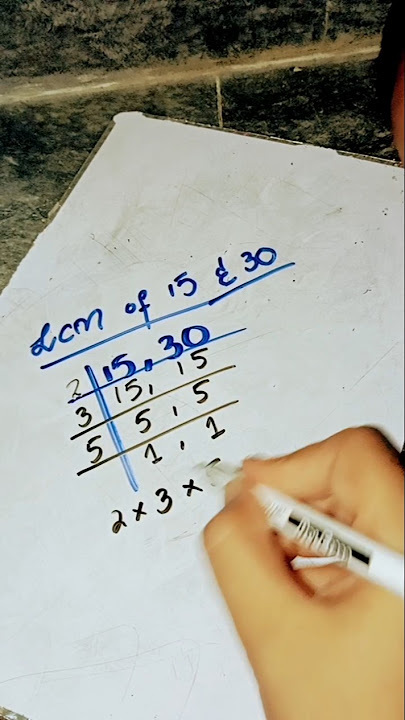 LCM of 15 & 30
2 | 15, 30
3 | 15, 15
5 | 5, 5
1, 1
2 × 3 ×